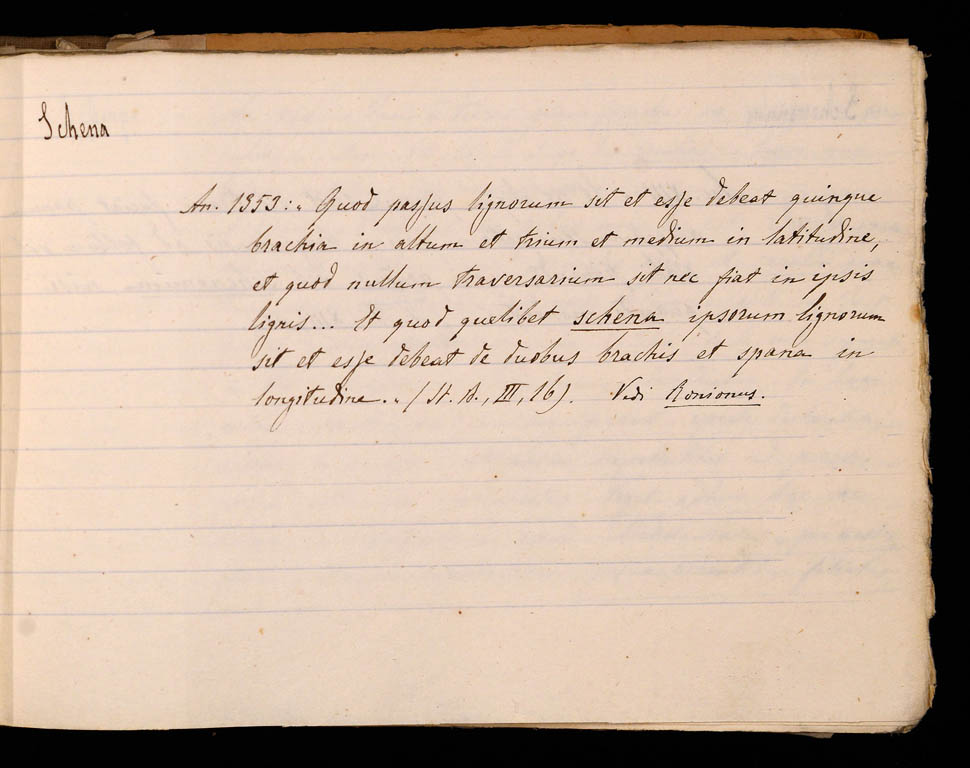 Schena
An. 1353: „ Quod passus lignorum sit et esse debeat quinque
brachia in altum et trium et medium in latitudine,
et quod nullum traversarium sit nec fiat in ipsis
lignis... Et quod quelibet schena ipsorum lignorum
sit et esse debeat de duobus brachis et spana in
longitudine. „ (St. A., III, 16). Vedi Ronionus.